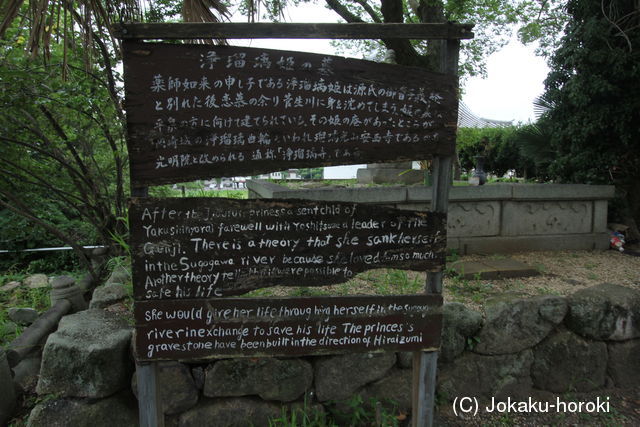 浄瑠璃姫の墓
薬師如来の申し子である浄瑠璃姫は源氏の御曹子義経
と別れた後恋慕の余り菅生川に身を沈めてしまう
平泉の方に向けて建てられている。その姫の庵があったところが
の浄瑠璃曲輪いわれ瑠璃光山安西寺である
光明院と改められる 通称「浄瑠璃寺」である
After the Jyoruri princess a sent child of
Yakushinyorai farewell with Yoshitsune a leader of the
Genji. There is a theory that she sank herself
in the Sugogawa river because she loved him so much.
Another theory tells that it were possible to
safe his life
She would give her life through hanging herself in the Sugogawa
river in exchange to save his life The princes's
gravestone have been built in the direction of Hiraizumi
(C) Jokaku-horoki